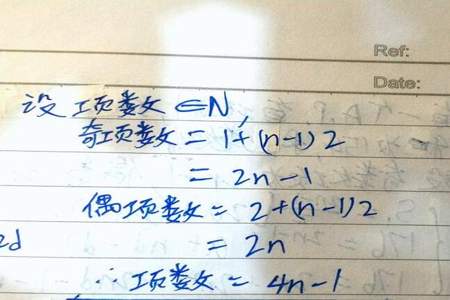 Ref:
Date:
设项数∈N,
奇项数=1+(n-1)2
=2n-1
偶项数=2+(n-1)2
2d
=2n
∴项数=4n-1